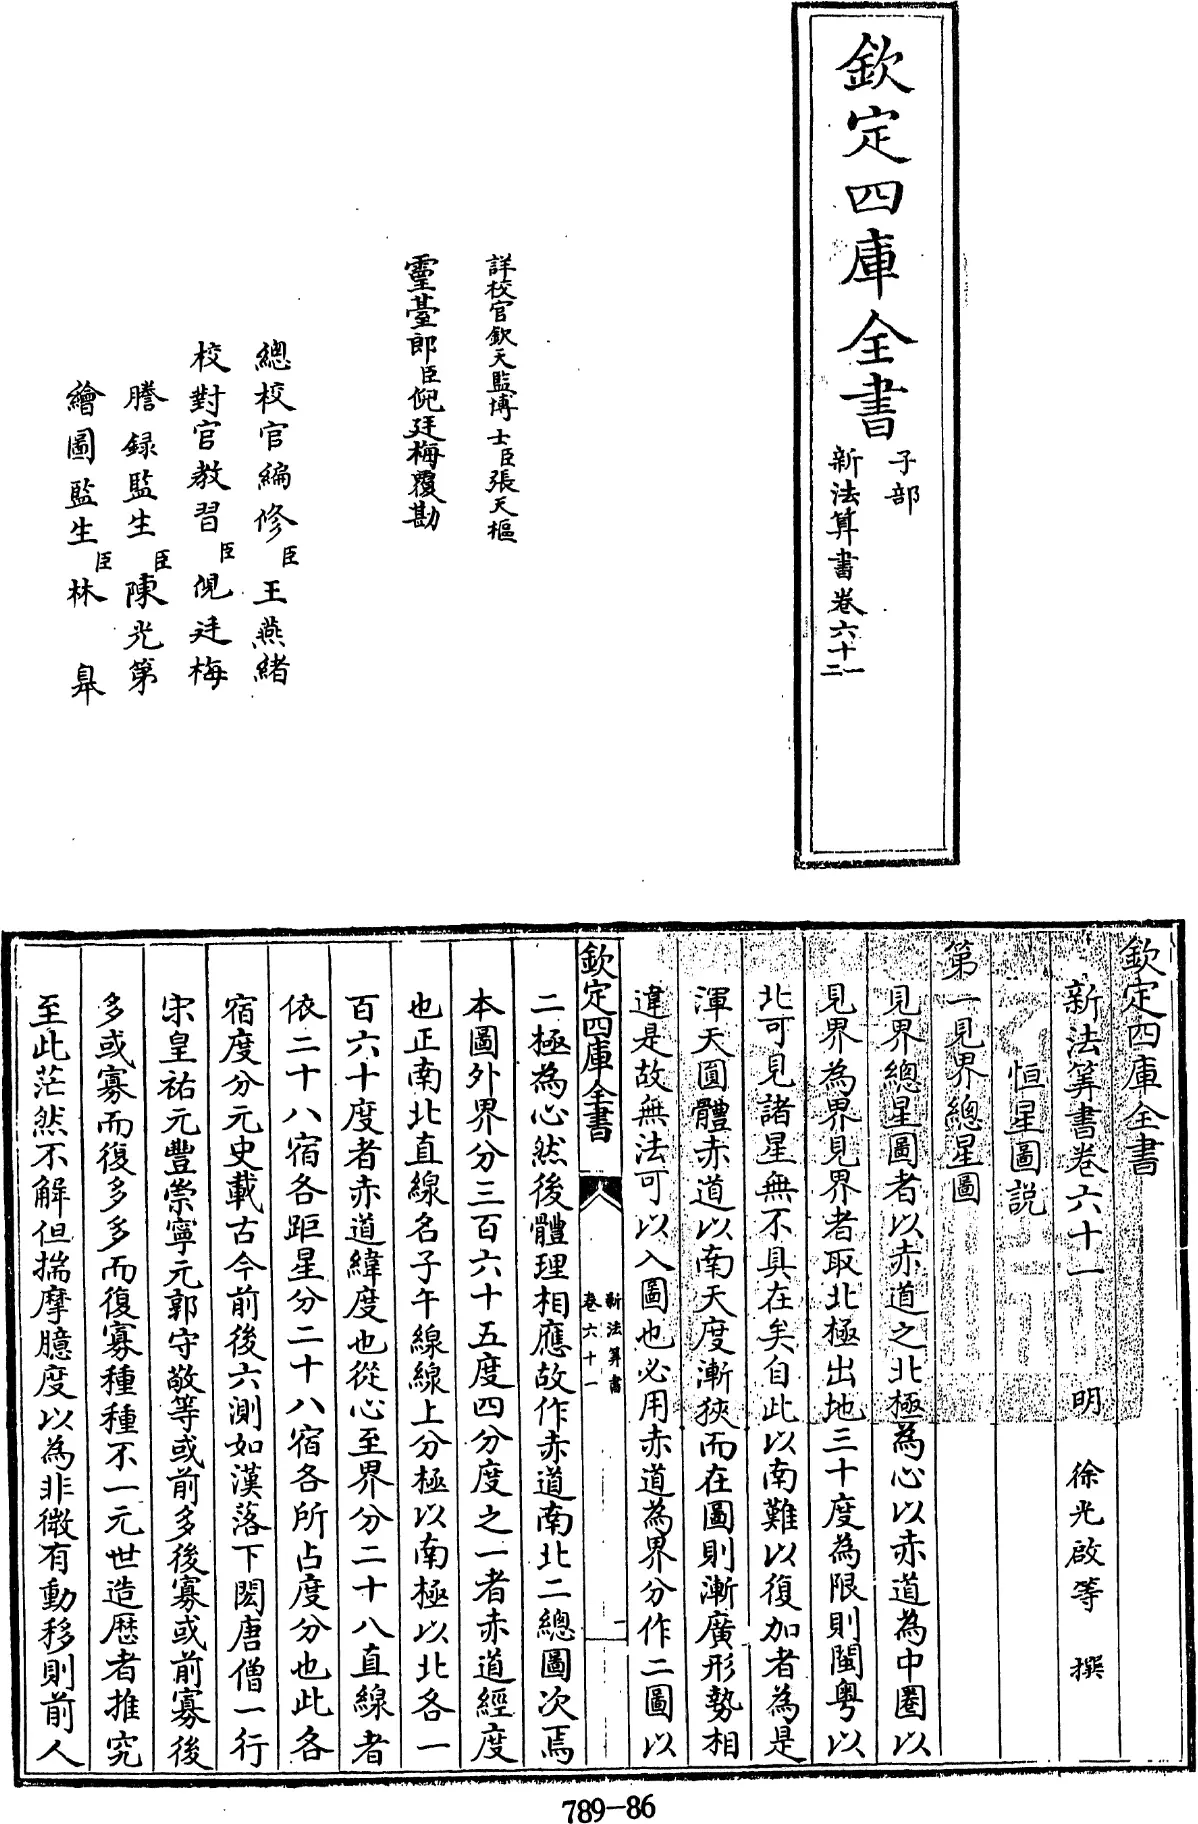 欽定四庫全書
子部
新法算書卷六十一
二
詳校官欽天監博士臣張天樞
靈臺郎臣倪廷梅覆勘
總校官編修臣王燕緒
校對官教習臣倪廷梅
謄録監生臣陳光第
繪圖監生臣林皐
欽定四庫全書
新法算書卷六十一 明 徐光啟等 撰
恒星圖説
第一見界總星圖
見界總星圖者以赤道之北極為心以赤道為中圏以
見界為界見界者取北極出地三十度為限則閩粤以
北可見諸星無不具在矣自此以南難以復加者為是
渾天圓體赤道以南天度漸狹而在圖則漸廣形勢相
違是故無法可以入圖也必用赤道為界分作二圖以
欽定四庫全書
新法算書
卷六十一
一
二極為心然後體理相應故作赤道南北二總圖次焉
本圖外界分三百六十五度四分度之一者赤道經度
也正南北直線名子午線線上分極以南極以北各一
百六十度者赤道緯度也從心至界分二十八直線者
依二十八宿各距星分二十八宿各所占度分也此各
宿度分元史載古今前後六測如漢落下閎唐僧一行
宋皇祐元豐崇寧元郭守敬等或前多後寡或前寡後
多或寡而復多多而復寡種種不一元世造歴者推究
至此茫然不解但揣摩臆度以為非微有動移則前人
789-86